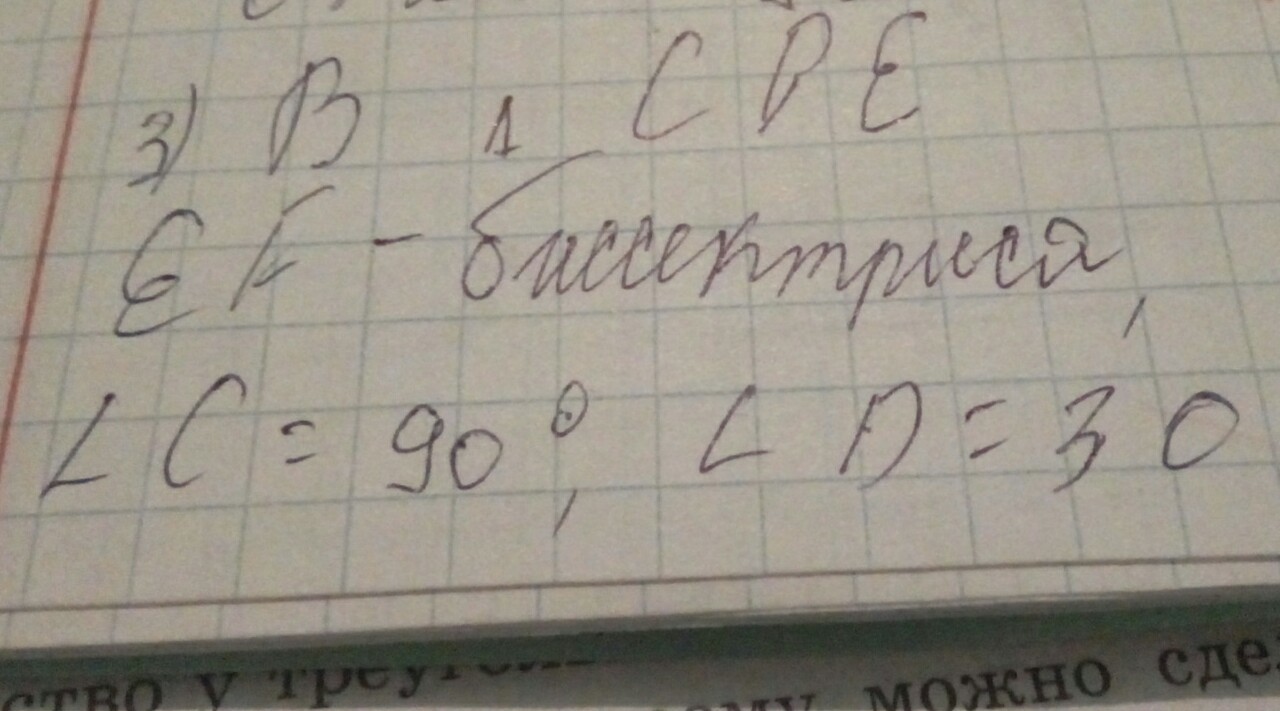 3) В △ CDE
EF - биссектриса,
∠C = 90°, ∠D = 30
ство у треугол
ому можно сде